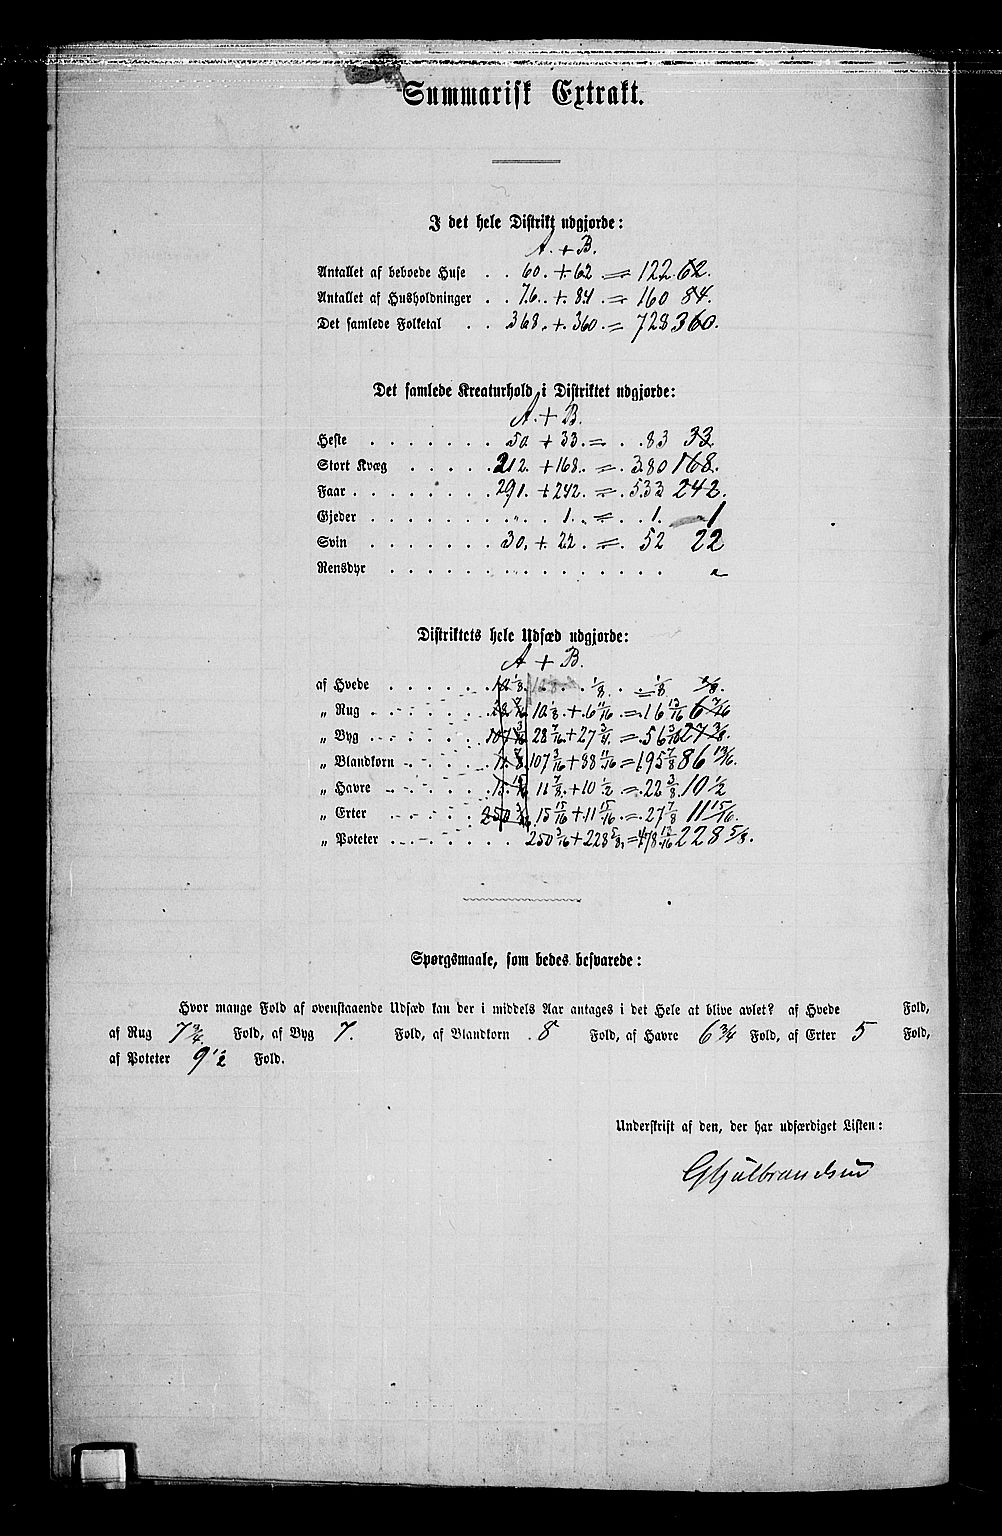 Summarisk Extrakt.
I det hele Distrikt udgjorde:
A. + B.
Antallet af beboede Huse . . 60. + 62 = 122 62.
Antallet af Husholdninger . . 76. + 84 = 160 84.
Det samlede Folketal . . 368. + 360. = 728 360.
Det samlede Kreaturhold i Distriktet udgjorde:
A. + B.
Heste . . . . . . . 50 + 33. = . . 83 33.
Stort Kvæg . . . . . 212. + 168. = . 380 168.
Faar . . . . . . . . 291. + 242. = . 533 242.
Gjeder . . . . . . . „ . . 1. . = . . 1. 1
Svin . . . . . . . 30. + 22. = . 52 22
Rensdyr . . . . . . . . . . . . . . . „
Distriktets hele Udsæd udgjorde:
A + B.
af Hvede . . . . . . 1/8. . = 1/8 1/8.
„ Rug . . . . . . 10 1/8. + 6 11/16 = 16 13/16 6
„ Byg . . . . . . 28 7/16 + 27 3/8. = 56 27 3/8.
„ Blandkorn . . . . 107 3/16 + 88 11/16 = 195 7/8 86
„ Havre . . . . . 11 7/8. + 10 1/2 = 22 3/8. 10 1/2
„ Erter . . . . . 15 15/16 + 11 15/16 = 27 7/8 11 15/16.
„ Poteter . . . . . . . 250 3/16 + 228 5/8. = 478 13/16 228 5/8.
Spørgsmaale, som bedes besvarede:
Hvor mange Fold af ovenstaaende Udsæd kan der i middels Aar antages i det Hele at blive avlet? af Hvede Fold,
af Rug 7 3/4. Fold, af Byg 7. Fold, af Blandkorn . 8 Fold, af Havre 6 3/4 Fold, af Erter 5 Fold,
af Poteter 9 1/2 Fold.
Underskrift af den, der har udfærdiget Listen: